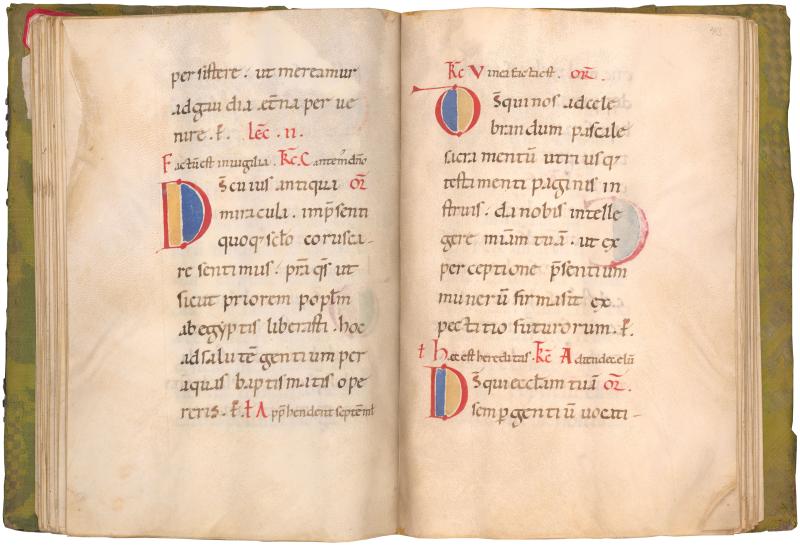 persistere . ut mereamur
adgaudia . et̄na per ue
nire . ꝑ. lec̄ . ii .
Factu᷒ est in uigilia . Kc̄. Cantem᷒ dn̄o
Ds̄ cuius antiqua or̄
miracula . imp̄senti
quoq; sc̄lo corusca-
re sentimus . pr̄a qs̄ ut
sicut priorem popl̄m
ab egẏptis liberasti . hoc
adsalutē gentium per
aquas baptismatis ope
reris . ꝑ. t̄ App̄hendent septem᷒
Kc̄ Vinea facta est . or̄.
Ds̄ qui nos adcele
brandum pascale
sacramentū utriusq;
testamenti paginis in
struis . da nobis intelle
gere miam̄ tuā . ut ex
perceptione p̄sentium
munerū firma sit ex
pectatio futurorum . ꝑ.
t̄ Haec est hereditas . Kc̄ Adtende celū
Ds̄ qui eccl̄am tuā or̄.
semp̄ gentiū uocati-